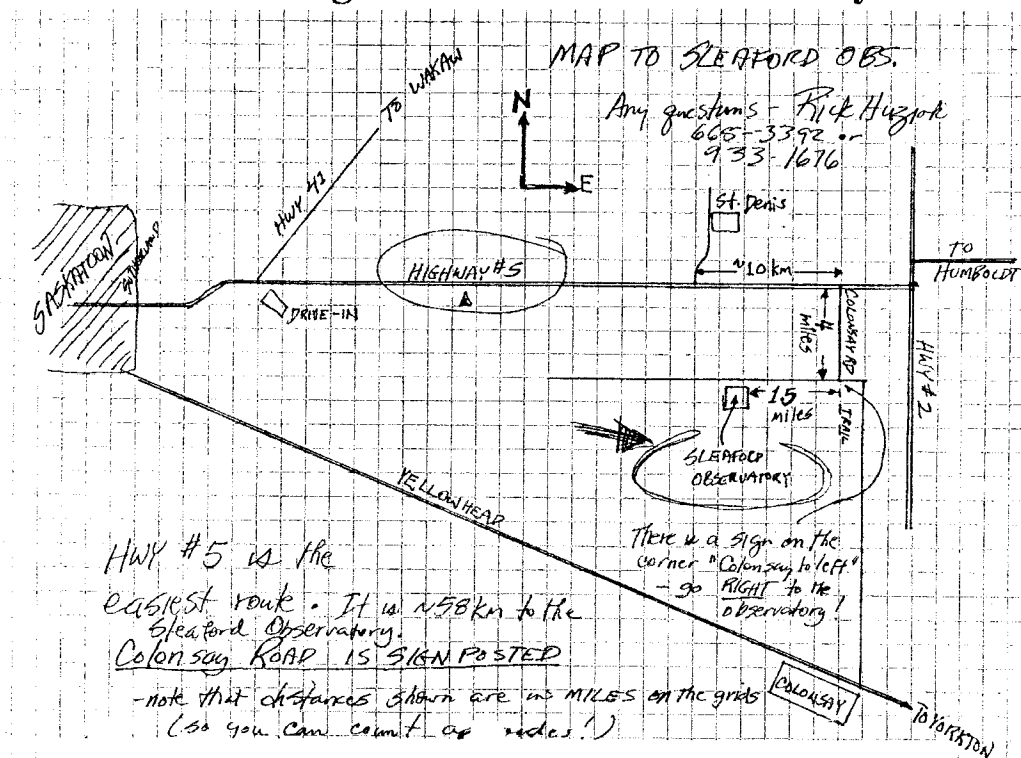 MAP TO SLEAFORD OBS.
Any questions - Rick Huziak
665-3392 or
933-1676
N
E
TO WAKAW
HWY 41
St. Denis
SASKATOON
SUTHERLAND
HIGHWAY #5
~10 km
TO
HUMBOLDT
DRIVE-IN
4
miles
COLONSAY RD
HWY #2
1.5
miles
TRAIL
SLEAFORD
OBSERVATORY
YELLOWHEAD
There is a sign on the
corner "Colonsay to left"
- go RIGHT to the
observatory!
HWY #5 is the
easiest route. It is ~58 km to the
Sleaford Observatory.
Colonsay ROAD IS SIGN POSTED
- note that distances shown are in MILES on the grids
(so you can count
COLONSAY
TO YORKTON